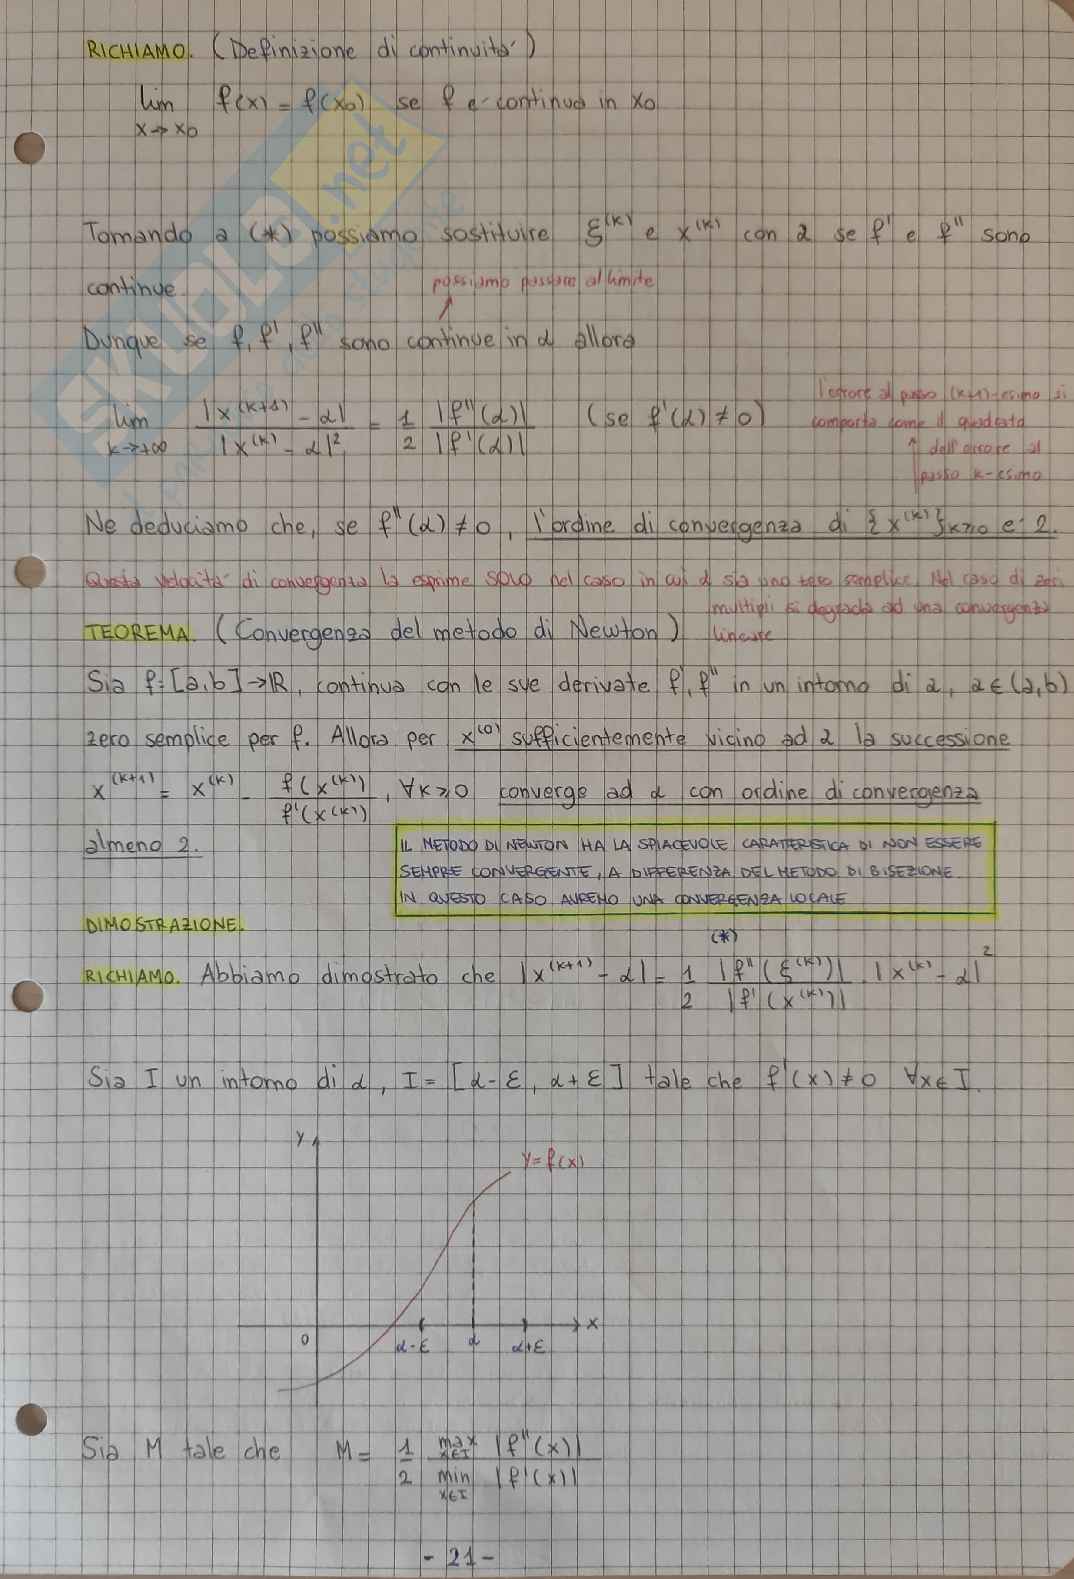 RICHIAMO. (Definizione di continuita')
lim f(x) = f(x0) se f e' continua in x0
x→x0
Tornando a (*) possiamo sostituire ξ^(k) e x^(k) con α se f' e f'' sono
continue.
possiamo passare al limite
Dunque se f, f', f'' sono continue in α allora
lim |x^(k+1) - α| / |x^(k) - α|^2 = 1/2 |f''(α)| / |f'(α)| (se f'(α) ≠ 0)
k→+∞
l'errore al passo (k+1)-esimo si
comporta come il quadrato
↑ dell'errore al
passo k-esimo
Ne deduciamo che, se f''(α) ≠ 0, l'ordine di convergenza di {x^(k)}k≥0 e' 2.
Questa velocita' di convergenza la esprime SOLO nel caso in cui α sia uno zero semplice. Nel caso di zeri
multipli si degrada ad una convergenza
lineare
TEOREMA. (Convergenza del metodo di Newton)
Sia f:[a,b]→ℝ, continua con le sue derivate f', f'' in un intorno di α, α∈(a,b)
zero semplice per f. Allora per x^(0) sufficientemente vicino ad α la successione
x^(k+1) = x^(k) - f(x^(k)) / f'(x^(k)), ∀k≥0 converge ad α con ordine di convergenza
almeno 2.
IL METODO DI NEWTON HA LA SPIACEVOLE CARATTERISTICA DI NON ESSERE
SEMPRE CONVERGENTE, A DIFFERENZA DEL METODO DI BISEZIONE.
IN QUESTO CASO AVREMO UNA CONVERGENZA LOCALE
DIMOSTRAZIONE.
(*)
RICHIAMO. Abbiamo dimostrato che |x^(k+1) - α| = 1/2 |f''(ξ^(k))| / |f'(x^(k))| · |x^(k) - α|^2
Sia I un intorno di α, I = [α-ε, α+ε] tale che f'(x) ≠ 0 ∀x∈I.
y
y=f(x)
0 α-ε α α+ε x
Sia M tale che M = 1/2 max x∈I |f''(x)| / min x∈I |f'(x)|
- 21 -
SKUOLA.net